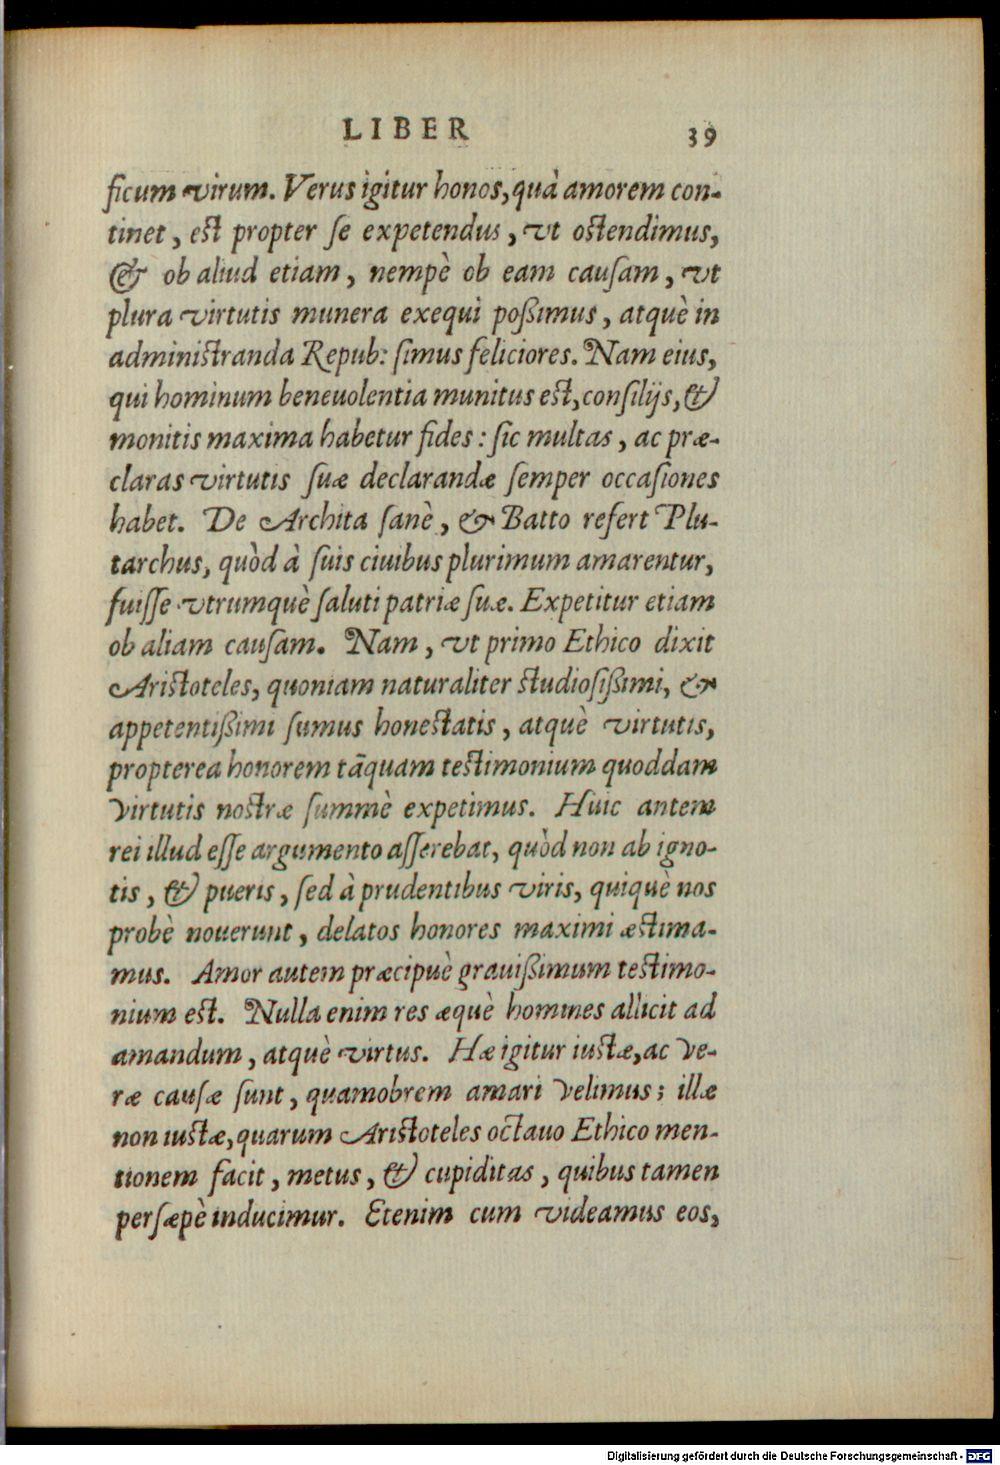 LIBER 39
ficum virum. Verus ìgitur honos, quà amorem con-
tinet, est propter se expetendus, vt ostendimus,
& ob aliud etiam, nempè ob eam causam, vt
plura virtutis munera exequi poßimus, atquè in
administranda Repub: simus feliciores. Nam eius,
qui hominum beneuolentia munitus est, consilijs, &
monitis maxima habetur fides: sic multas, ac præ-
claras virtutis suæ declarandæ semper occasiones
habet. De Archita sanè, & Batto refert Plu-
tarchus, quòd à suis ciuibus plurimum amarentur,
fuisse vtrumquè saluti patriæ suæ. Expetitur etiam
ob aliam causam. Nam, vt primo Ethico dixit
Aristoteles, quoniam naturaliter studiosißimi, &
appetentißimi sumus honestatis, atquè virtutis,
propterea honorem tãquam testimonium quoddam
virtutis nostræ summè expetimus. Huic antem
rei illud esse argumento asserebat, quòd non ab igno-
tis, & pueris, sed à prudentibus viris, quiquè nos
probè nouerunt, delatos honores maximi æstima-
mus. Amor autem præcipuè grauißimum testimo-
nium est. Nulla enim res æquè homines allicit ad
amandum, atquè virtus. Hæ igitur iustæ, ac ve-
ræ causæ sunt, quamobrem amari velimus; illæ
non iustæ, quarum Aristoteles octauo Ethico men-
tionem facit, metus, & cupiditas, quibus tamen
persæpè inducimur. Etenim cum videamus eos,
Digitalisierung gefördert durch die Deutsche Forschungsgemeinschaft - DFG